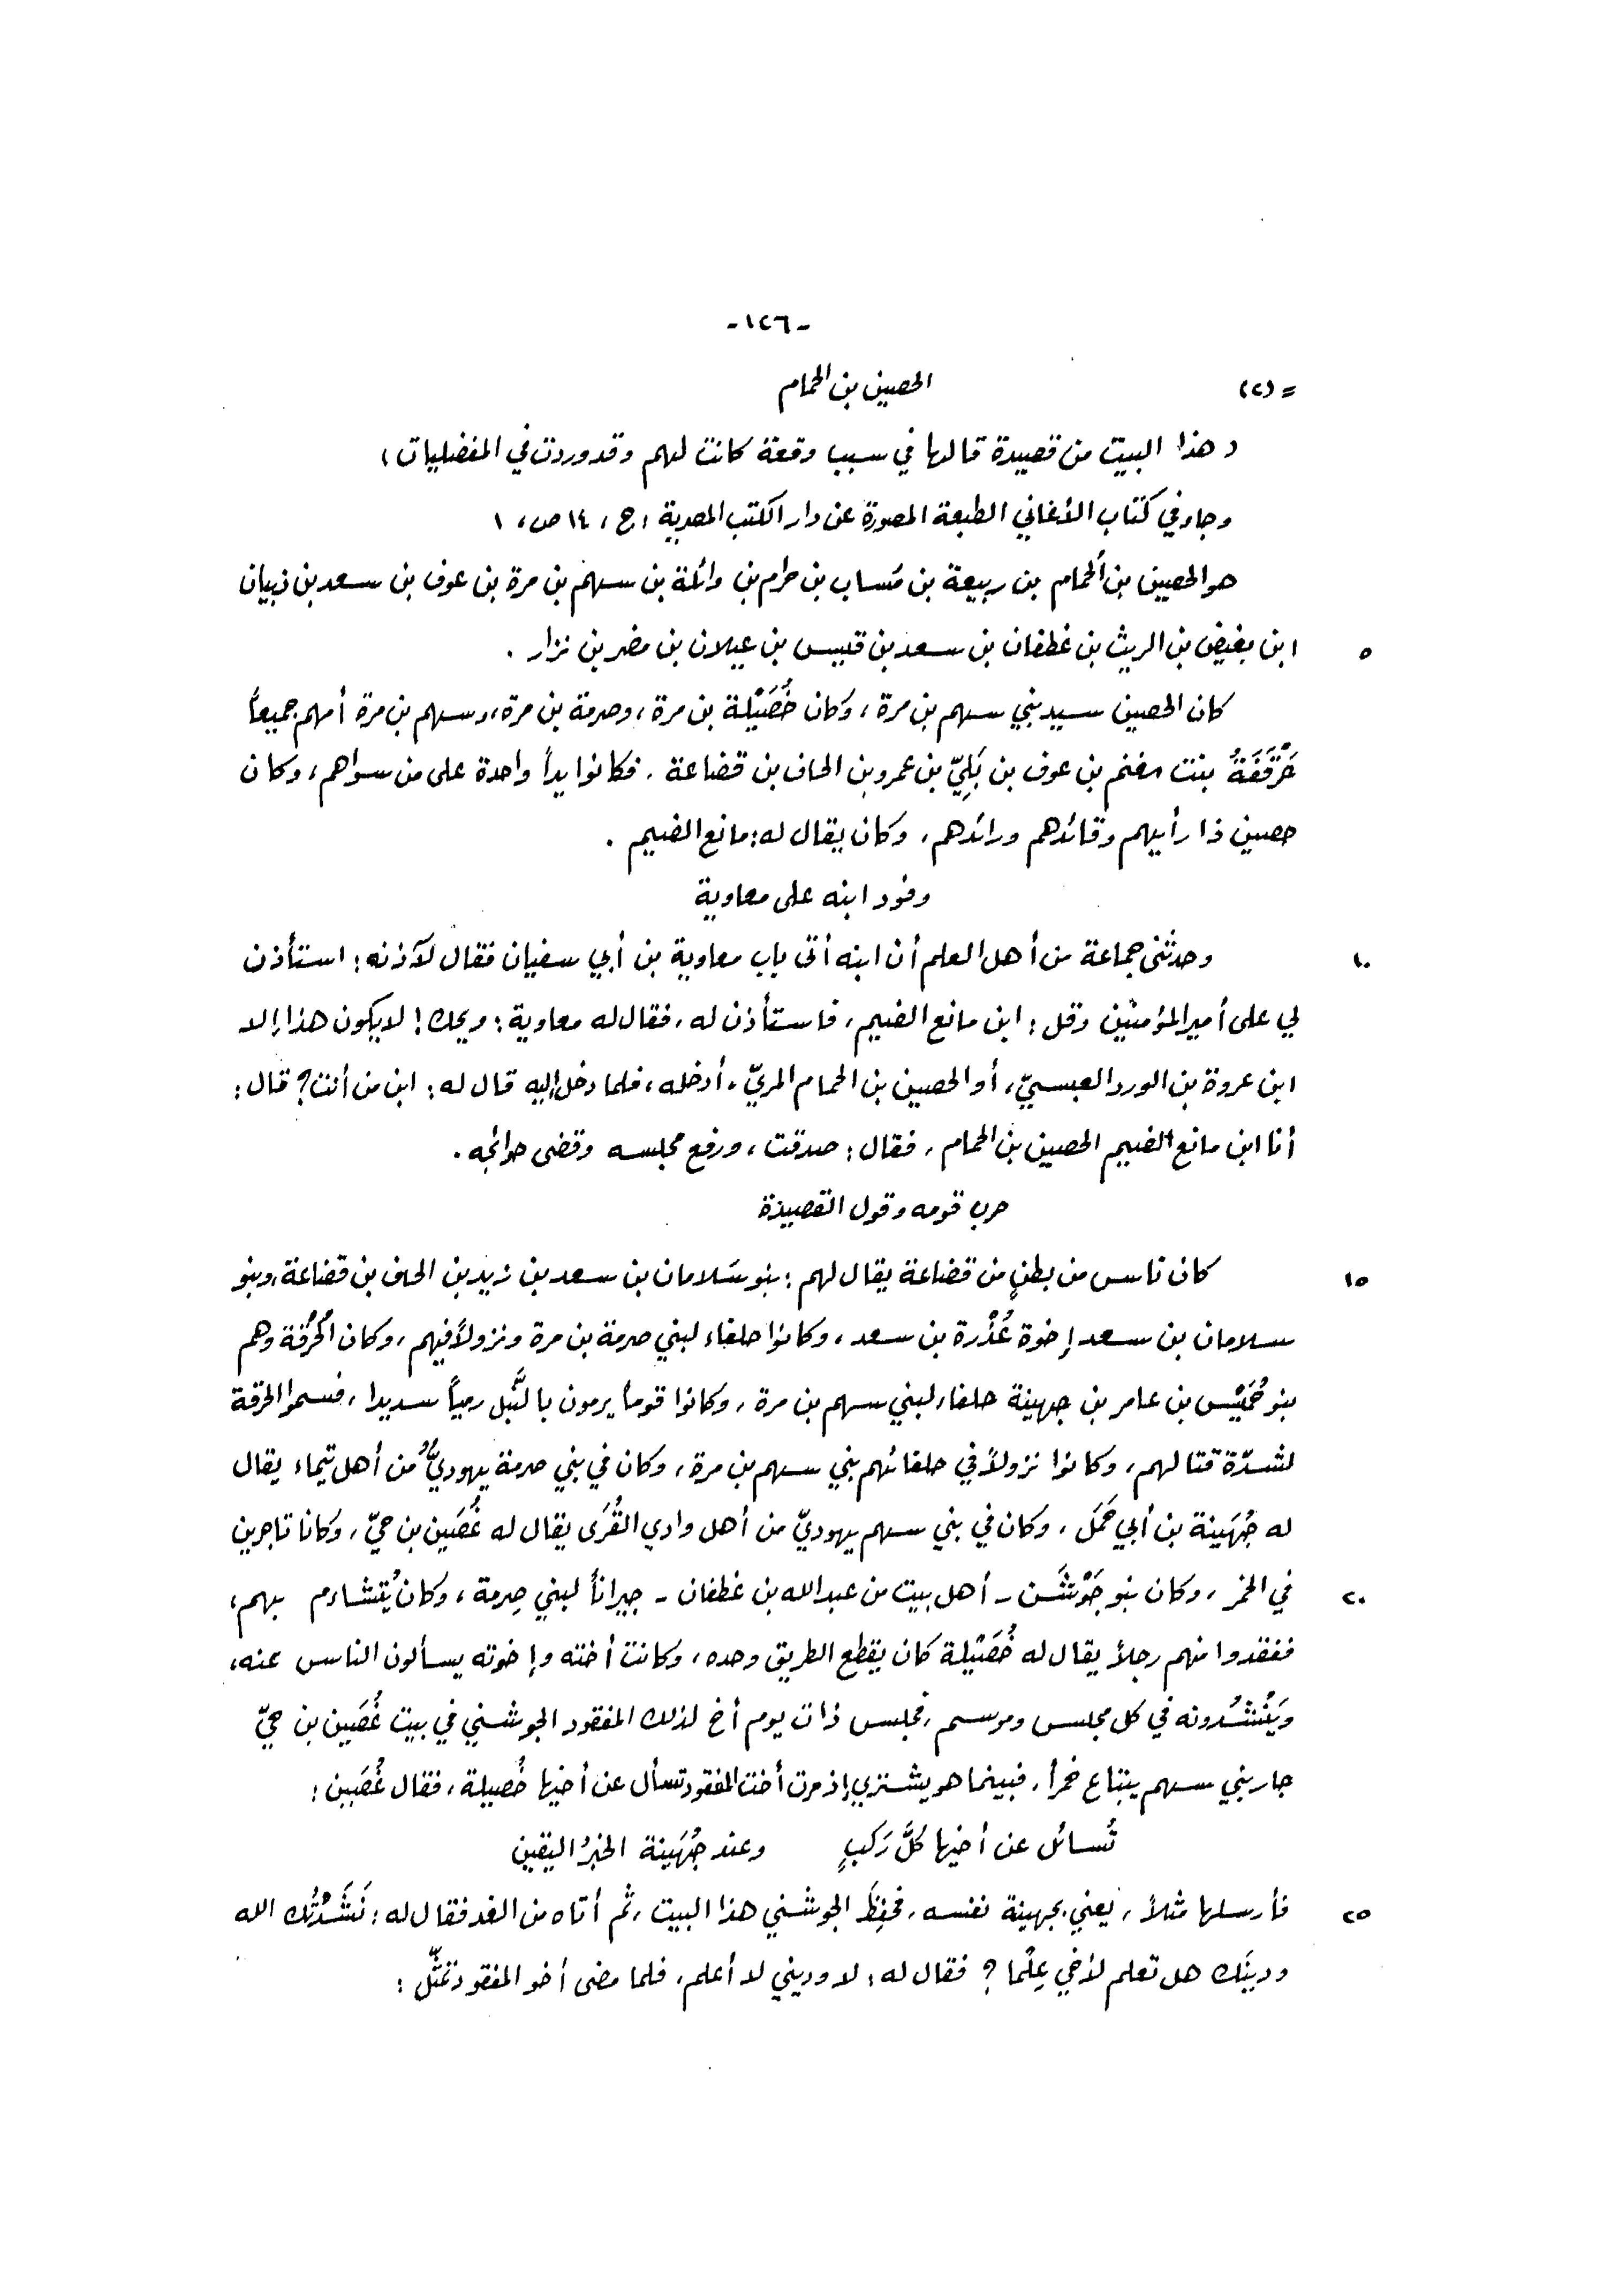 -١٢٦-
= (٢) الحصين بن الحمام
د هذا البيت من قصيدة قالها في سبب وقعة كانت لهم وقد وردت في المفضليات،
وجاء في كتاب الأغاني الطبعة المصورة عن دار الكتب المصرية، ج، ١٤ ص، ١
هو الحصين بن الحمام بن ربيعة بن مَساب بن حرام بن وائلة بن سهم بن مرة بن عوف بن سعد بن ذبيان
٥ ابن بغيض بن الريث بن غطفان بن سعد بن قيس بن عيلان بن مضر بن نزار .
كان الحصين سيد بني سهم بن مرة، وكان خُصَيْلة بن مرة، وصرمة بن مرة، وسهم بن مرة أمهم جميعاً
حَرْقَفَةُ بنت مغنم بن عوف بن بَلِيّ بن عمرو بن الحاف بن قضاعة . فكانوا يداً واحدة على من سواهم، وكان
حصين ذا رأيهم وقائدهم ورائدهم، وكان يقال له: مانع الضيم .
وفود ابنه على معاوية
١٠ وحدثني جماعة من أهل العلم أن ابنه أتى باب معاوية بن أبي سفيان فقال لآذنه: استأذن
لي على أمير المؤمنين وقل: ابن مانع الضيم، فاستأذن له، فقال له معاوية: ويحك! لا يكون هذا إلا
ابن عروة بن الورد العبسيّ، أو الحصين بن الحمام المريّ، أدخله، فلما دخل إليه قال له: ابن من أنت؟ قال:
أنا ابن مانع الضيم الحصين بن الحمام، فقال: صدقت، ورفع مجلسه وقضى حوائجه .
حرب قومه وقول القصيدة
١٥ كان ناس من بطنٍ من قضاعة يقال لهم: بنو سَلامان بن سعد بن زيد بن الحف بن قضاعة، وبنو
سلامان بن سعد إخوة عُذْرة بن سعد، وكانوا حلفاء لبني صرمة بن مرة ونزولاً فيهم، وكان الحُرَقة وهم
بنو حُمَيْس بن عامر بن جهينة حلفاء لبني سهم بن مرة، وكانوا قوماً يرمون بالنَّبل رمياً سديدا، فسموا الحرقة
لشدّة قتالهم، وكانوا نزولاً في حلفائهم بني سهم بن مرة، وكان في بني صرمة يهوديٌّ من أهل تيماء يقال
له جُهَينة بن أبي حَمَل، وكان في بني سهم يهوديّ من أهل وادي القُرَى يقال له غُصَين بن حيّ، وكانا تاجرين
٢٠ في الخمر، وكان بنو جَوْشَن - أهل بيت من عبد الله بن غطفان - جيراناً لبني صِرمة، وكان يُتشاءم بهم،
ففقدوا منهم رجلاً يقال له خُصَيْلة كان يقطع الطريق وحده، وكانت أخته وإخوته يسألون الناس عنه،
ويَنْشُدونه في كل مجلس وموسم، فجلس ذات يوم أخ لذلك المفقود الجوشني في بيت غُصَين بن حيّ
جار بني سهم يبتاع خمراً، فبينما هو يشتري إذ مرت أخت المفقود تسأل عن أخيها خُصيلة، فقال غُصَين:
تُسائل عن أخيها كلَّ رَكبٍ وعند جُهَينة الخبرُ اليقين
٢٥ فأرسلها مثلاً، يعني بجهينة نفسه، فحَفِظَ الجوشني هذا البيت، ثم أتاه من الغد فقال له: نَشَدْتُك الله
ودينَك هل تعلم لأخي عِلْما؟ فقال له: لا وديني لا أعلم، فلما مضى أخو المفقود تمثّل: